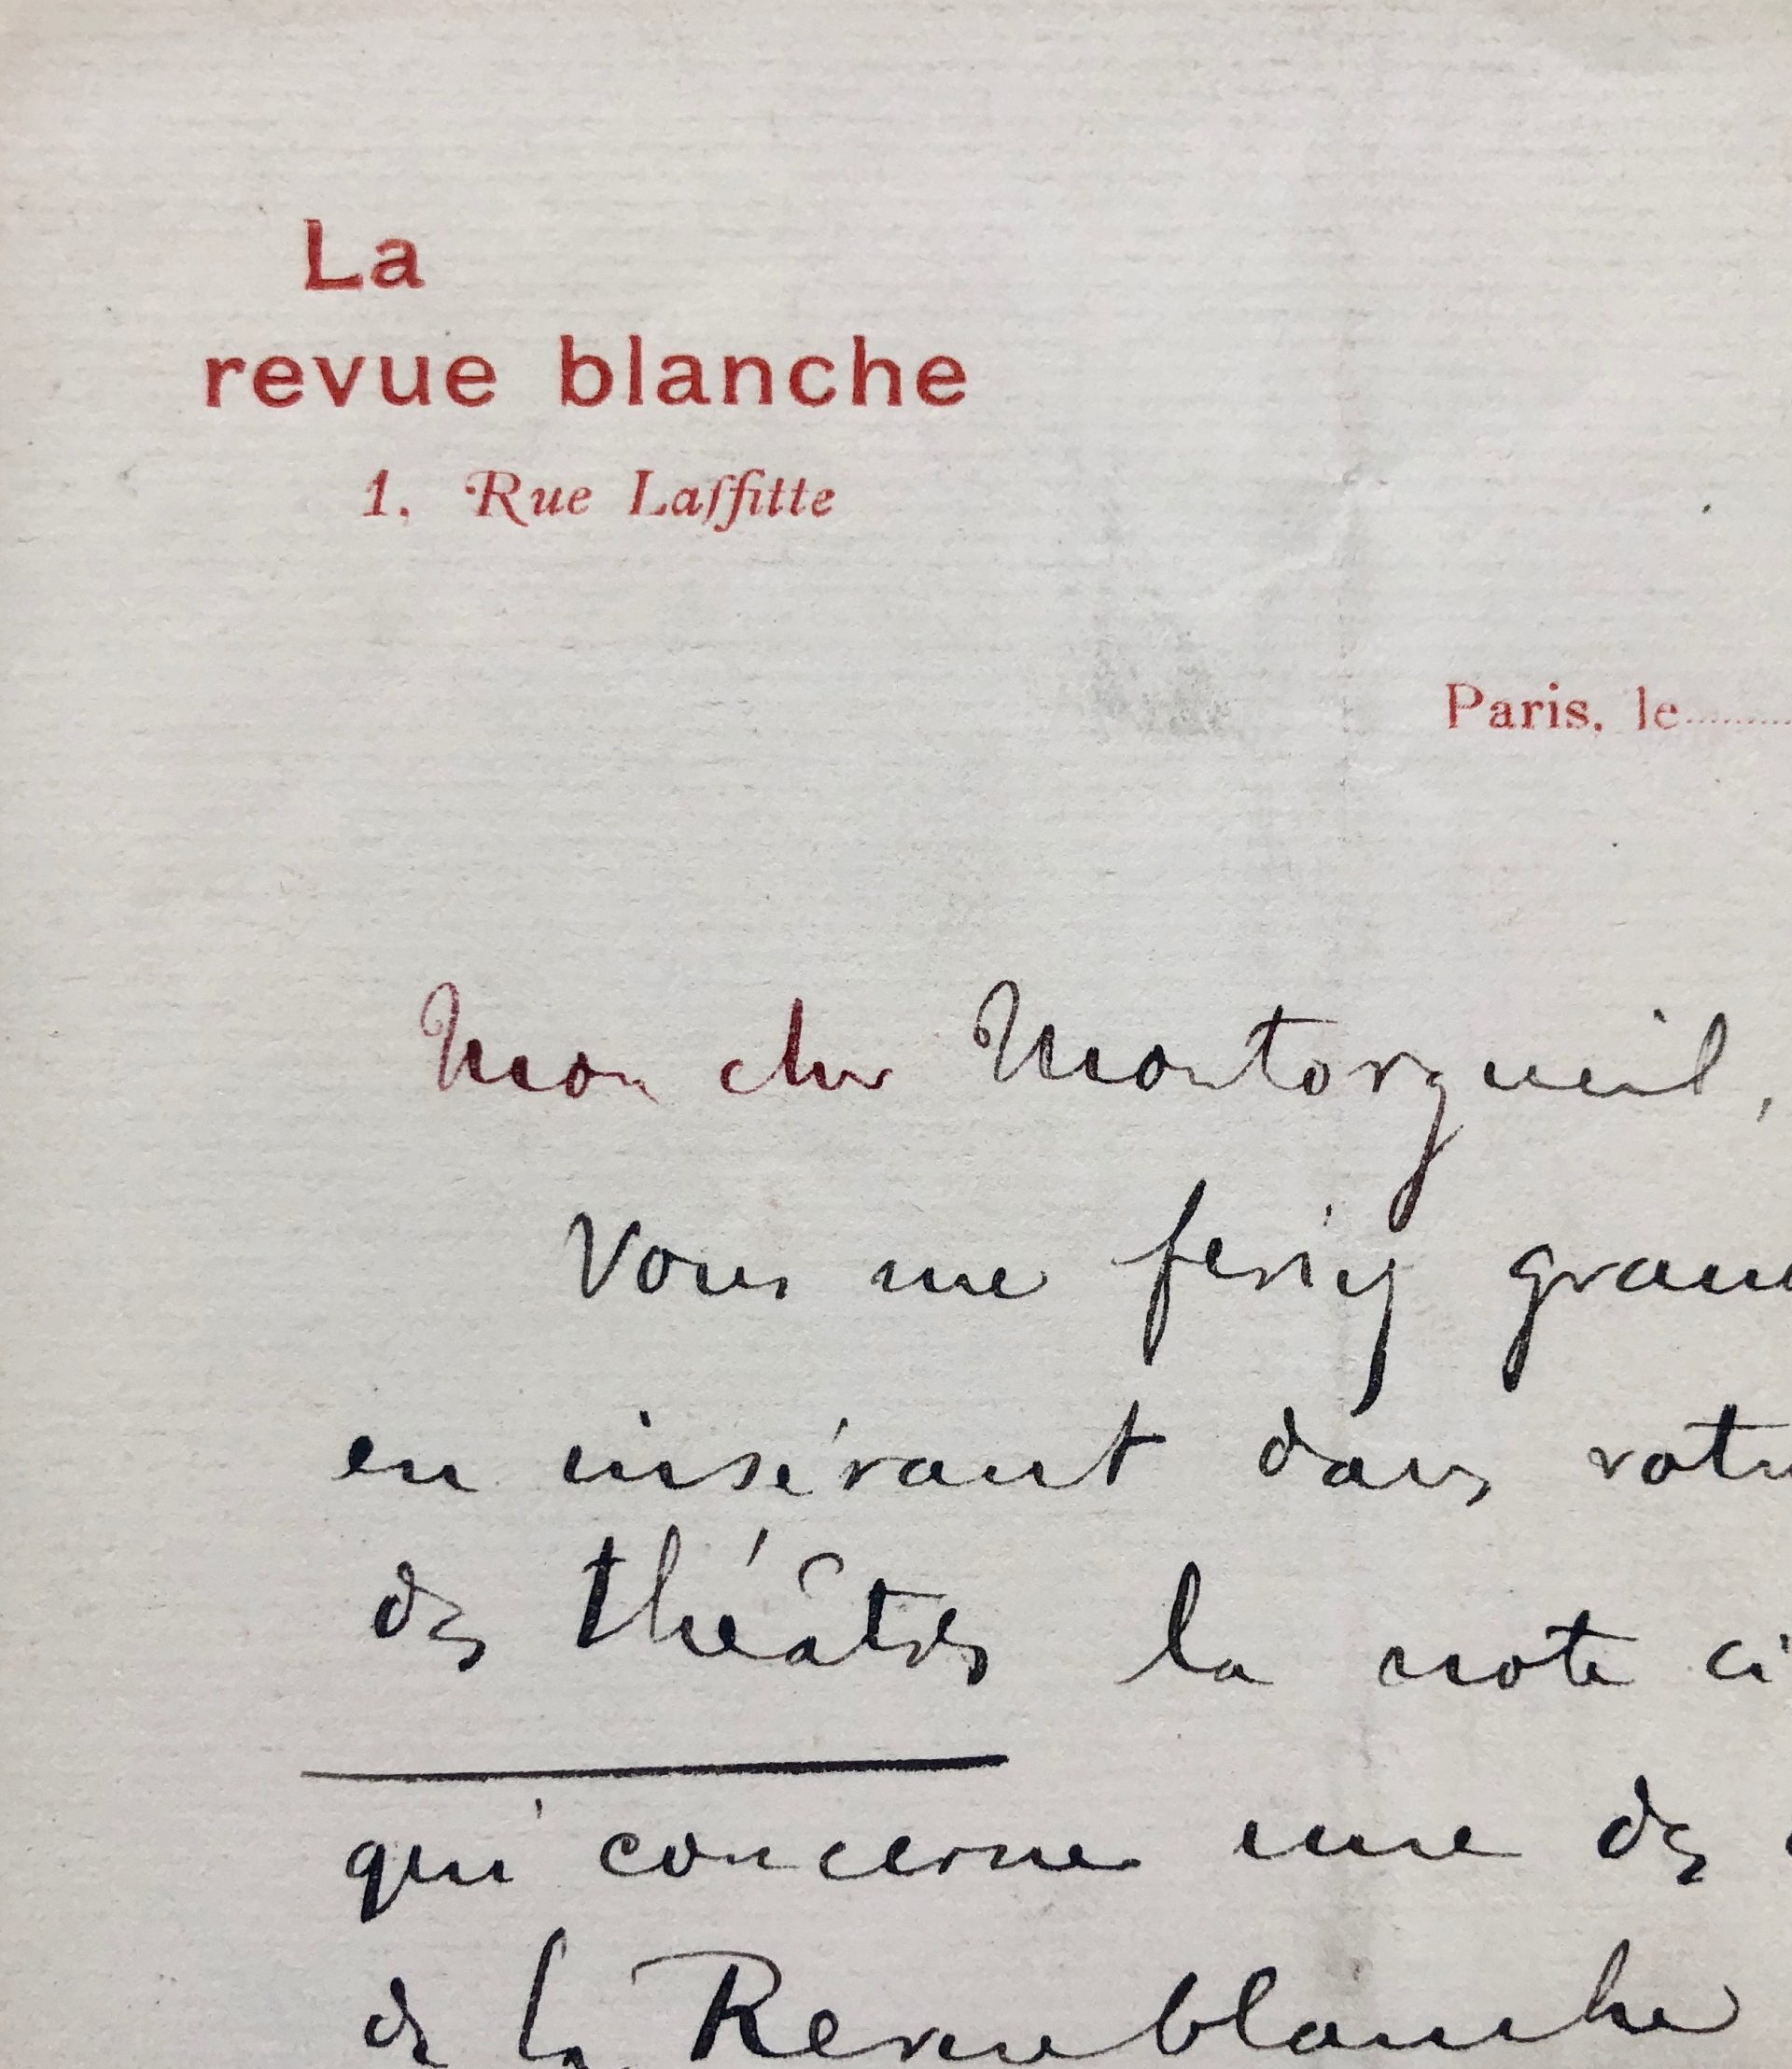 La
revue blanche
1, Rue Laffitte
Paris, le
Mon cher Montorgueil,
Vous me feriez gran
en insérant dans votre
des théâtres la note ci
qui concerne une des
de la Revue blanche